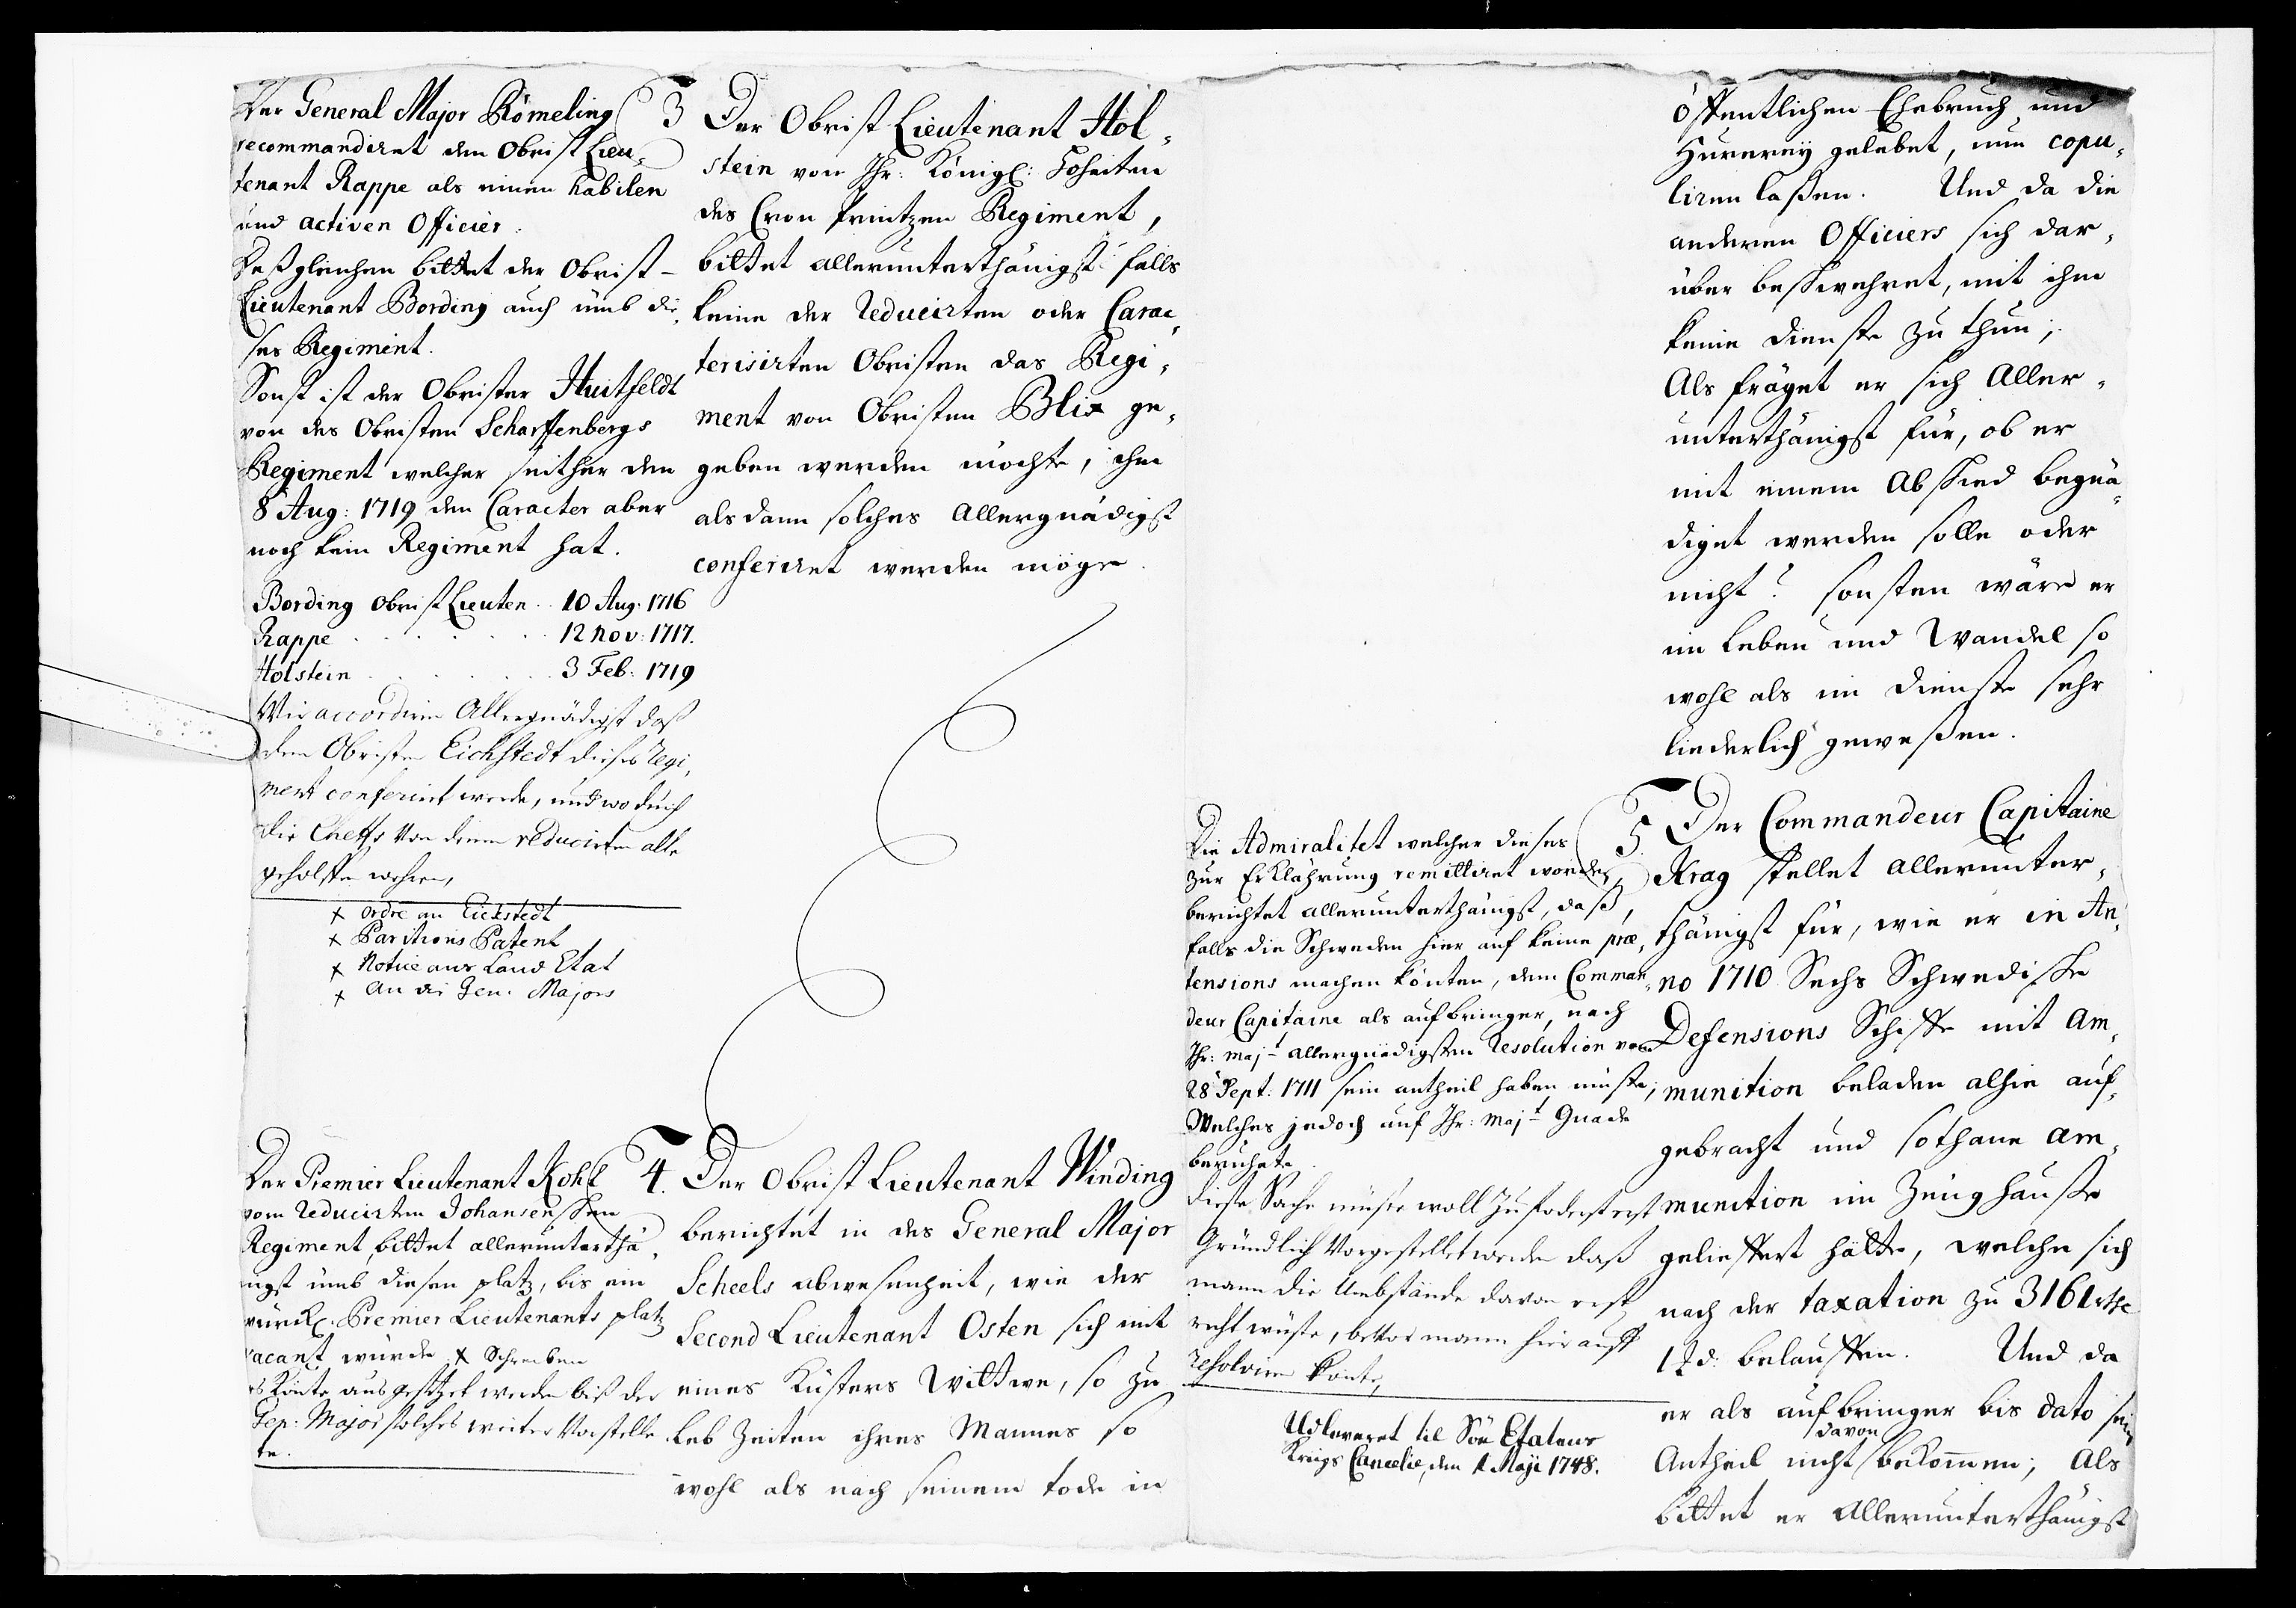 Der General Major Römeling
recommandiret den Obrist Lieu-
tenant Rappe als einen habilen
und activen Officier.
Deßgleichen bittet der Obrist-
Lieutenant Bording auch umb die-
ses Regiment.
Sonst ist der Obrister Huitfeldt
von des Obristen Scharffenbergs
Regiment welcher seither den
8 Aug: 1719 den Caracter aber
noch kein Regiment hat.
Bording Obrist Lieuten. 10 Aug. 1716
Rappe . . . . . 12 Nov: 1717.
Holstein . . . . . 3 Feb: 1719
Wir accordiren Allergnädigst daß
dem Obristen Eichstedt dieses Regi-
ment conferirt werde, und wo durch
die Cheffs von denen reducirten alle
geholffen wehren,
x Ordre an Eickstedt
x Paritions Patent
x Notice aus Land Etat
x An die Gen. Majors
3 Der Obrist Lieutenant Hol-
stein von Ihr: Königl: Hoheiten
des Cron Printzen Regiment,
bittet allerunterthänigst falls
keine der reducirten oder Carac-
terisirten Obristen das Regi-
ment von Obristen Blix ge-
geben werden möchte, ihm
alsdann solches Allergnädigst
conferiret werden möge.
Der Premier Lieutenant Kohl
vom reducirten Johansenschen
Regiment, bittet allerunterthä-
nigst umb diesen platz, bis ein
würckl. Premier Lieutenants platz
vacant würde. x Schreiben
es könte ausgesetzet werden biß der
Gen: Major solches weiter vorstelle
te.
4. Der Obrist Lieutenant Winding
berichtet in des General Major
Scheels abwesenheit, wie der
Second Lieutenant Osten sich mit
eines Küsters Wittwe, so zu
Leb Zeiten ihres Mannes so
wohl als nach seinem tode in
öffentlichen Ehebruch und
Hurerey gelebet, nun copu-
liren laßen. Und da die
anderen Officiers sich dar-
über beschwehret, mit ihm
keine dienste zu thun;
Als fräget er sich Aller-
unterthänigst für, ob er
mit einem Abschied begnä-
diget werden solle oder
nicht? sonsten wäre er
im Leben und Wandel so
wohl als im dienste sehr
liederlich geweßen.
Die Admiralitet welcher dieses
zur Erklährung remittiret worden,
berichtet allerunterthänigst, daß,
falls die Schweden hier auf keine præ-
tensions machen könten, dem Comman-
deur Capitaine als aufbringer, nach
Ihr: Majt allergnädigsten Resolution vom
28 Sept: 1711 sein antheil haben müste;
Welches jedoch auf Ihr: Majt Gnade
beruhete.
diese Sache müste woll zuforderst erst
Gründlich vorgestellet werden daß
mann die Umbstände davon erst
recht wüste, bevor mann hierauff
resolviren könte,
Udleveret til Søe Etatens
Krigs Cancelie, den 1 Maji 1748.
5. Der Commandeur Capitaine
Krag stellet allerunter-
thänigst für, wie er in An-
no 1710 Sechs Schwedische
Defensions Schiffe mit Am-
munition beladen alhie auf-
gebracht und sothane Am-
munition im Zeughause
geliefert hätte, welche sich
nach der taxation zu 3161 rthr
1 ꝑ d: belauffen. Und da
er als aufbringer bis dato sein
davon
Antheil nicht bekommen; Als
bittet er Allerunterthänigst